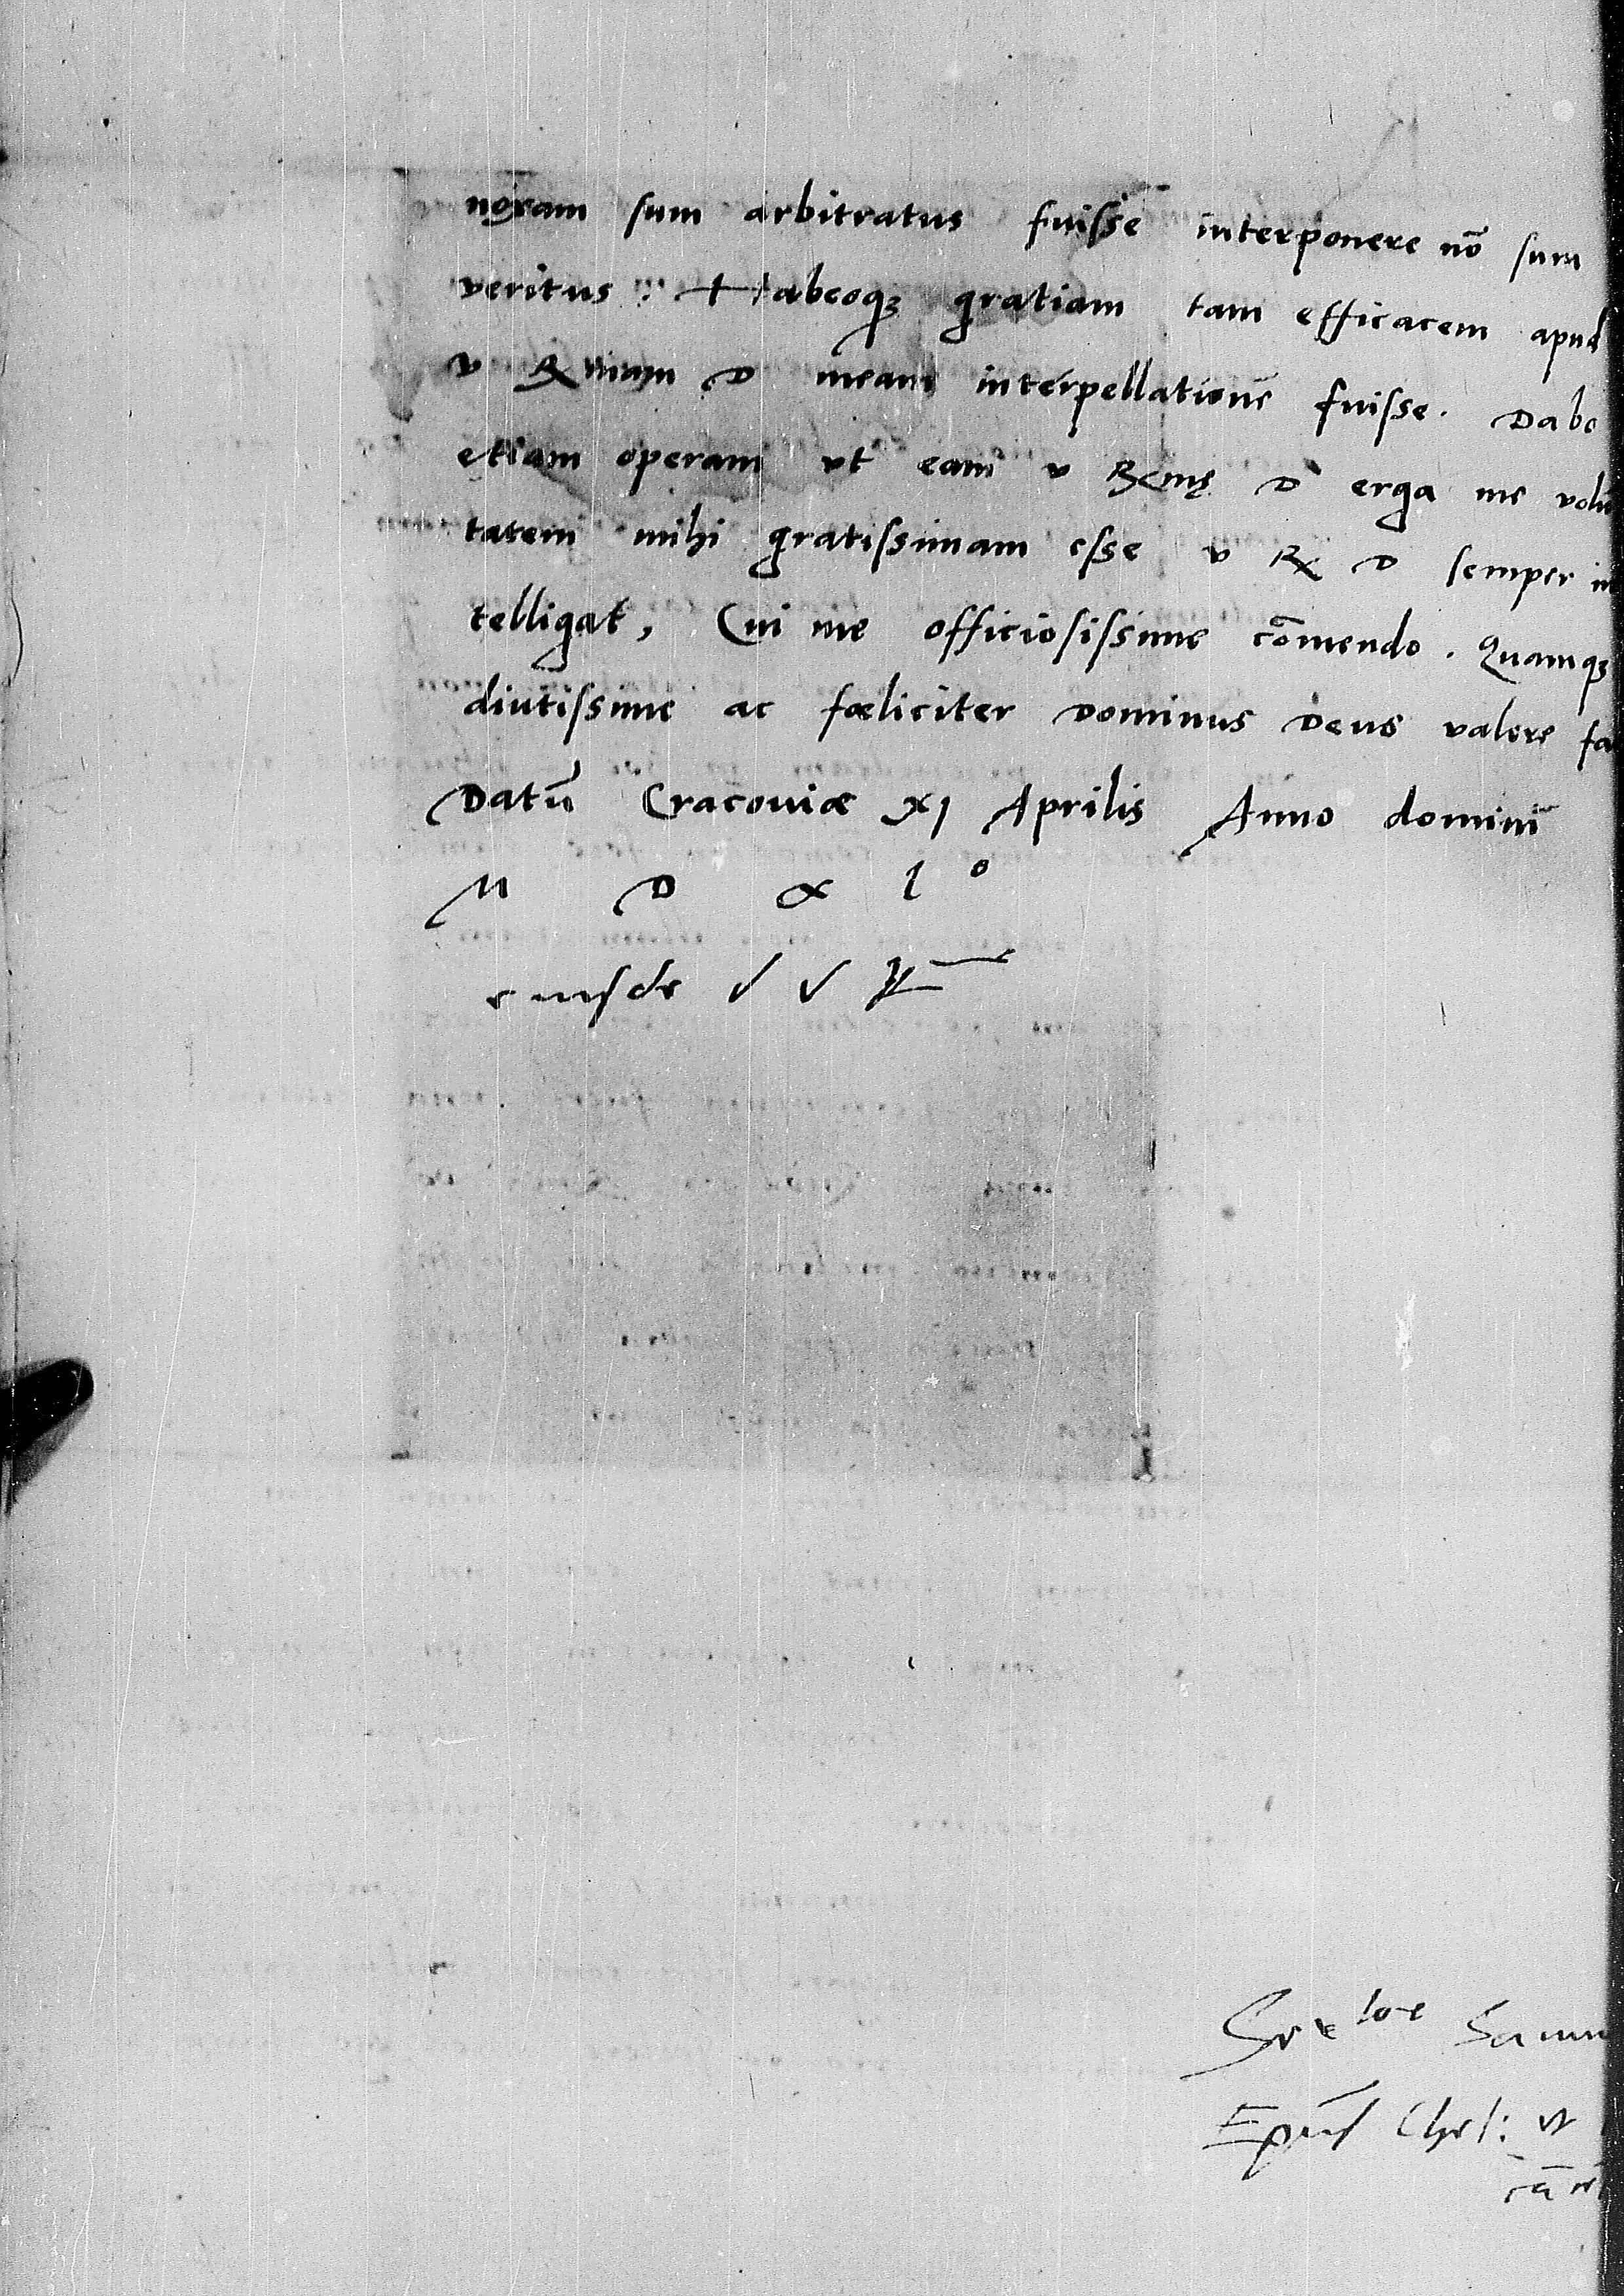 noram sum arbitratus fuisse interponere nō sum
veritus: Habeoqȝ gratiam tam efficacem apud
v Rmam D meam interpellationē fuisse. Dabo
etiam operam vt eam v Rmę D erga me volu
tatem mihi gratissimam esse v R D semper in
telligat, Cui me officiosissime cōmendo. Quamqȝ
diutissime ac fœliciter Dominus Deus valere fa
Datū Cracoviæ XI Aprilis Anno domini
M D X l o
eiusde v v R
Srv tor Samu
Epūs Chel: vt
cā